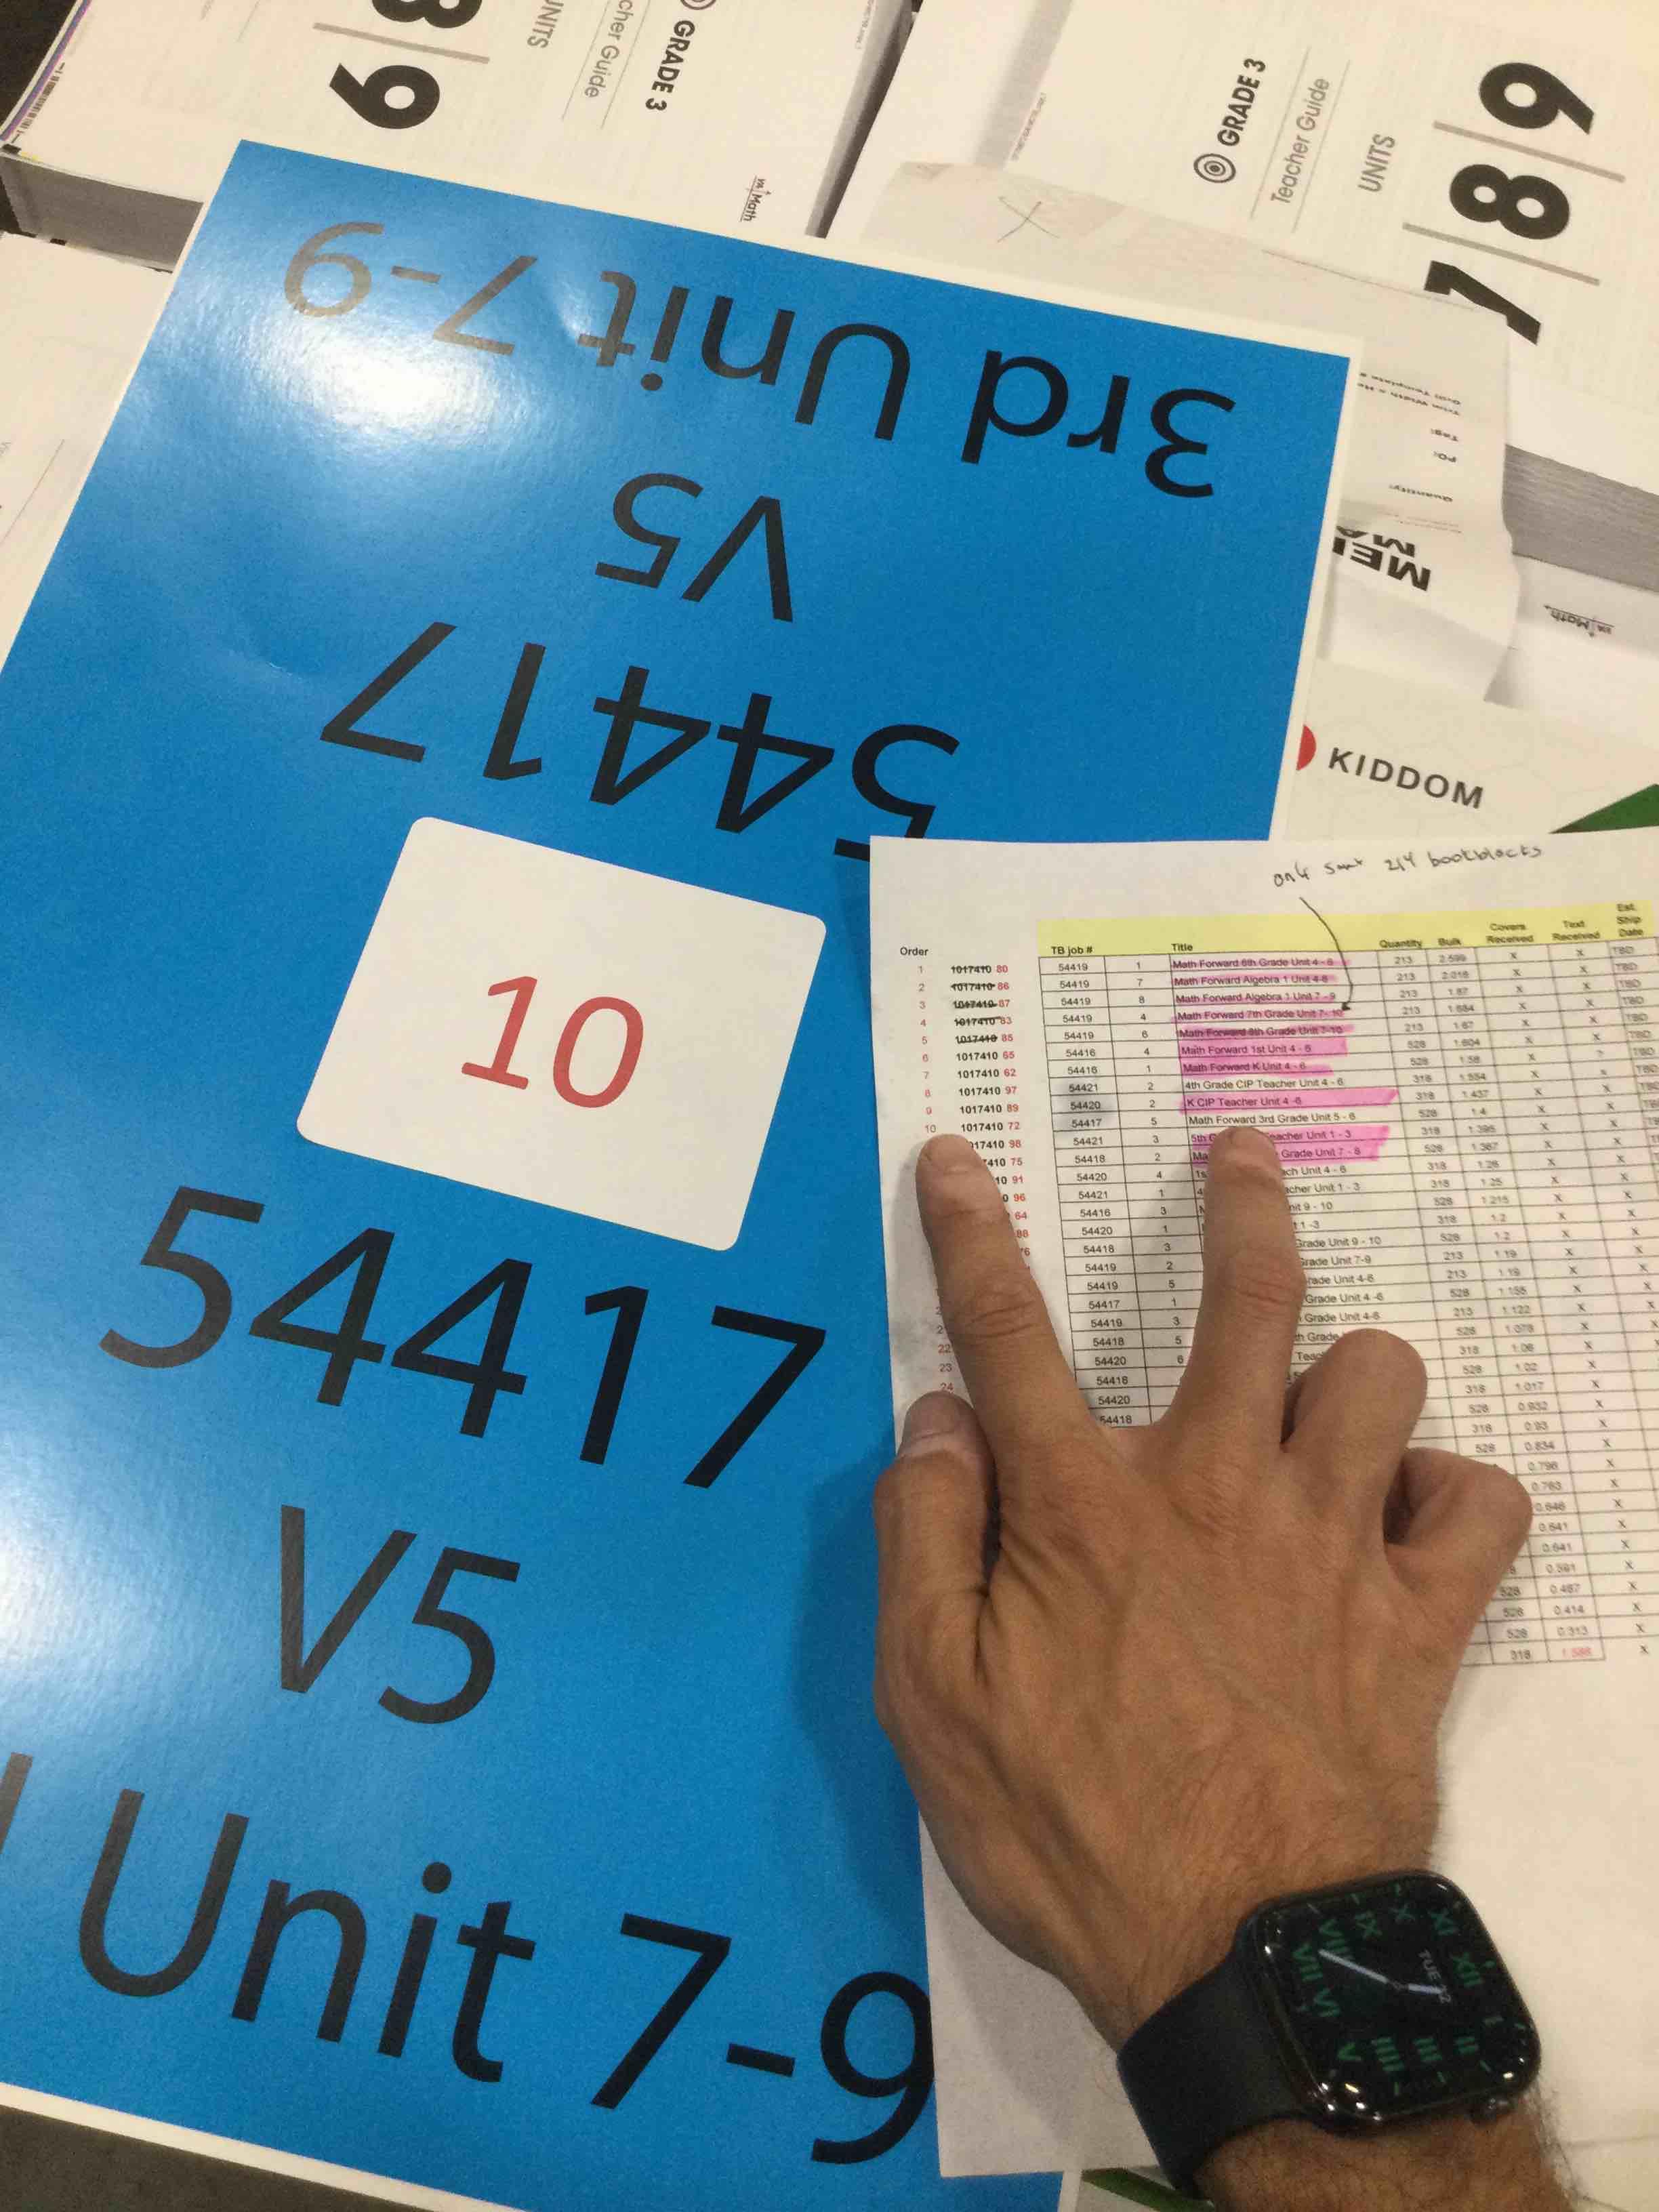 8 9
UNITS
Teacher Guide
GRADE 3
Math
GRADE 3
Teacher Guide
UNITS
7 8 9
Quantity:
PO:
Tag:
Math
KIDDOM
3rd Unit 7-9
V5
54417
10
54417
V5
Unit 7-9
2/4 bookblocks
Order TB job # Title Quantity Bulk Covers Received Text Received Est. Ship Date
1 1017410 80 54419 1 Math Forward 6th Grade Unit 4 - 6 213 2.599 x x TBD
2 1017410 86 54419 7 Math Forward Algebra 1 Unit 4-6 213 2.018 x x TBD
3 1017410 87 54419 8 Math Forward Algebra 1 Unit 7 - 9 213 1.87 x x TBD
4 1017410 83 54419 4 Math Forward 7th Grade Unit 7- 10 213 1.684 x x TBD
5 1017410 85 54419 6 Math Forward 8th Grade Unit 7-10 213 1.67 x x TBD
6 1017410 65 54416 4 Math Forward 1st Unit 4 - 6 528 1.604 x x
7 1017410 62 54416 1 Math Forward K Unit 4 - 6 528 1.58 x ? TBD
8 1017410 97 54421 2 4th Grade CIP Teacher Unit 4 - 6 318 1.554 x x
9 1017410 89 54420 2 K CIP Teacher Unit 4 -6 318 1.437 x x
10 1017410 72 54417 5 Math Forward 3rd Grade Unit 5 - 6 528 1.4 x x
17410 98 54421 3 5th Teacher Unit 1 - 3 318 1.395 x x
410 75 54418 2 Grade Unit 7 - 8 528 1.367 x x
10 91 54420 4 Unit 4 - 6 318 1.26 x x
96 54421 1 Unit 1 - 3 318 1.25 x x
64 54416 3 9 - 10 528 1.215 x x
88 54420 1 1 -3 318 1.2 x x
54418 3 Grade Unit 9 - 10 528 1.2 x x
54419 2 Grade Unit 7-9 213 1.19 x x
54419 5 Grade Unit 4-6 213 1.19 x x
54417 1 Grade Unit 4 -6 528 1.155 x x
54419 3 Grade Unit 4-6 213 1.122 x x
22 54418 5 Grade 528 1.078 x
23 54420 6 318 1.06 x
24 54416 528 1.02 x
54420 318 1.017 x
54418 528 0.932 x
318 0.93 x
528 0.834 x
0.798 x
0.763 x
0.646 x
0.641 x
0.641 x
0.591 x
528 0.467 x
528 0.414 x
528 0.313 x
318 x
TUE